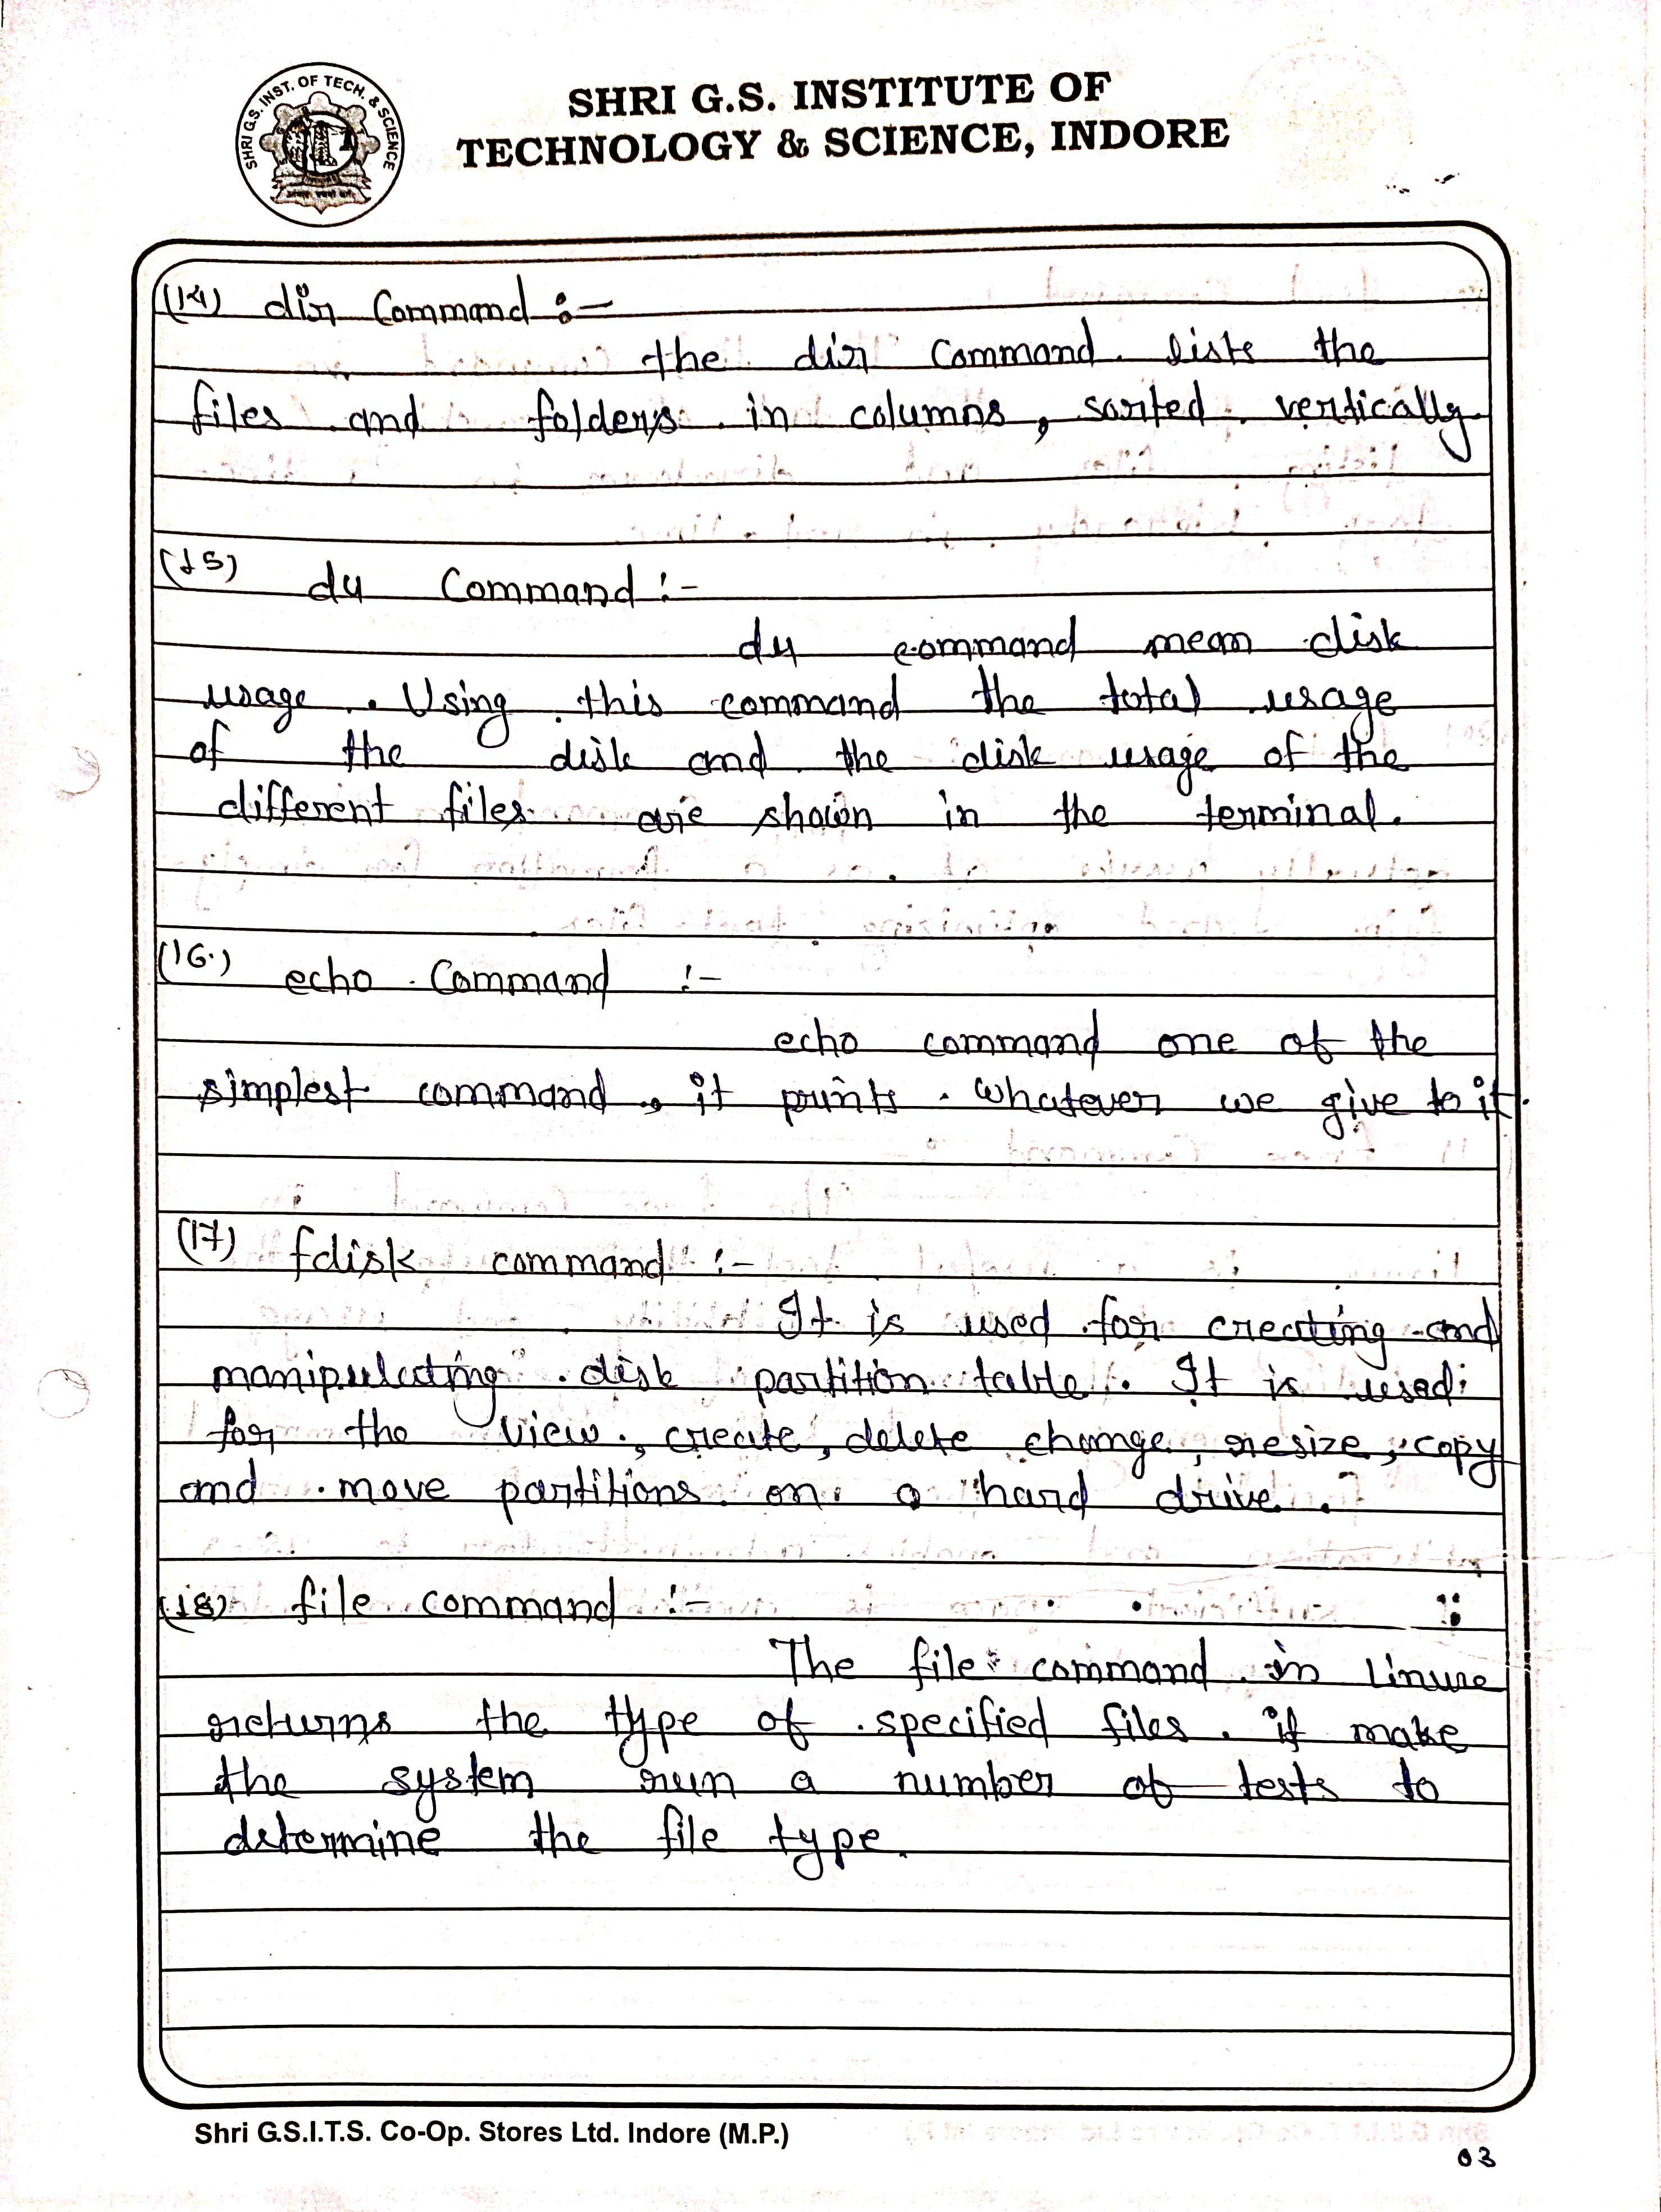 SHRI G.S. INST. OF TECH. & SCIENCE
SHRI G.S. INSTITUTE OF
TECHNOLOGY & SCIENCE, INDORE
(14) dir Command :-
the dir Command lists the
files and folders in columns, sorted vertically
(15) du Command :-
du command mean disk
usage. Using this command the total usage
of the disk and the disk usage of the
different files are shown in the terminal.
(16.) echo Command :-
echo command one of the
simplest command, it prints whatever we give to it.
(17) fdisk command :-
It is used for creating and
manipulating disk partition table. It is used
for the view, create, delete change, resize, copy
and move partitions on a hard drive.
(18) file command :-
The file command in linux
returns the type of specified files. it make
the system run a number of tests to
determine the file type.
Shri G.S.I.T.S. Co-Op. Stores Ltd. Indore (M.P.)
03